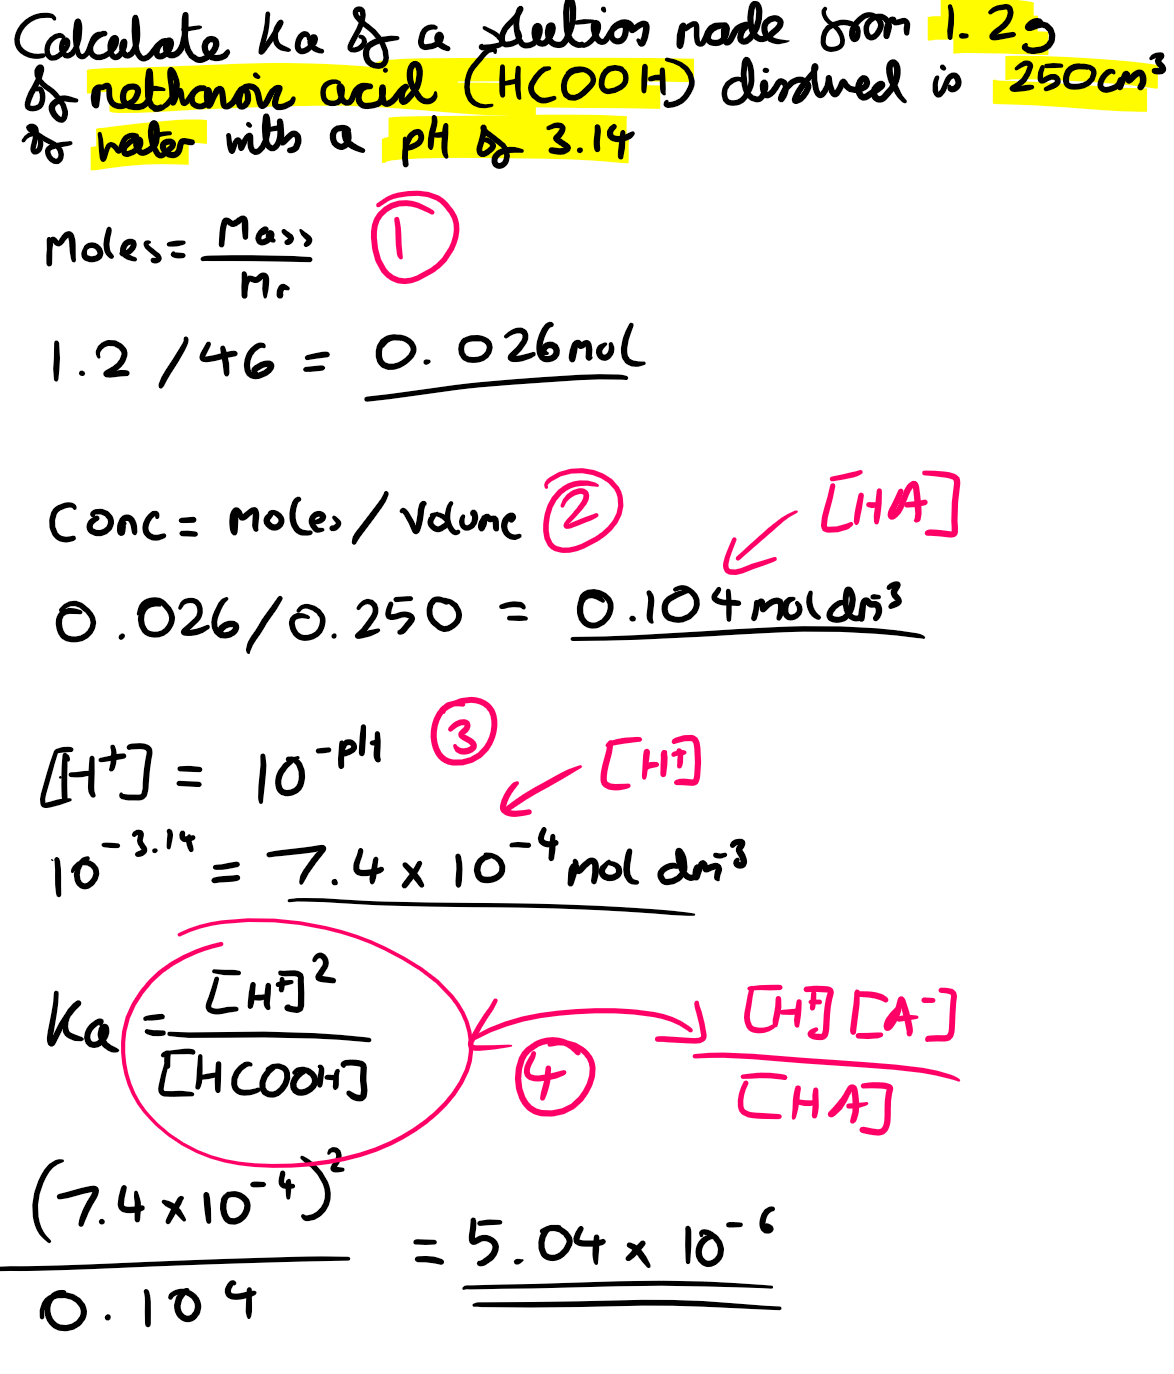 Calculate Ka of a solution made from 1.2g
of methanoic acid (HCOOH) dissolved in 250cm³
of water with a pH of 3.14
Moles = Mass / Mr
①
1.2 / 46 = 0.026 mol
Conc = Moles / Volume ②
[HA]
0.026 / 0.250 = 0.104 mol dm⁻³
[H⁺] = 10⁻ᵖᴴ ③
[H⁺]
10⁻³·¹⁴ = 7.4 x 10⁻⁴ mol dm⁻³
Ka = [H⁺]² / [HCOOH]
④
[H⁺] [A⁻] / [HA]
(7.4 x 10⁻⁴)² / 0.104 = 5.04 x 10⁻⁶